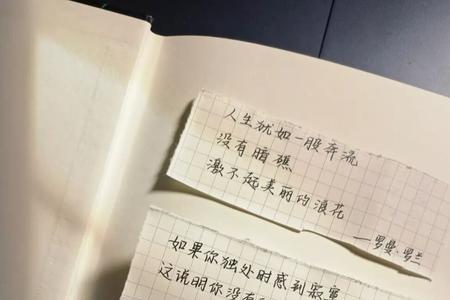 人生犹如一股奔流
没有暗礁
激不起美丽的浪花
——罗曼·罗兰
如果你独处时感到寂寞
这说明你没有